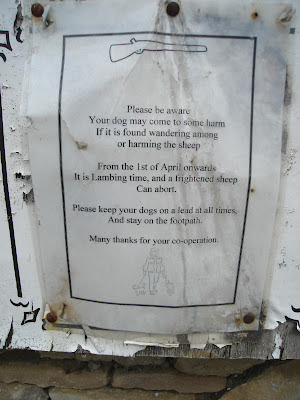 Please be aware
Your dog may come to some harm
If it is found wandering among
or harming the sheep
From the 1st of April onwards
It is Lambing time, and a frightened sheep
Can abort.
Please keep your dogs on a lead at all times,
And stay on the footpath.
Many thanks for your co-operation.